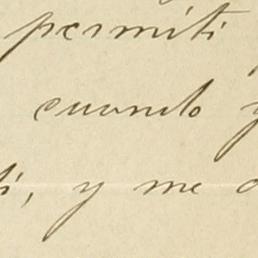 permiti
cuando y
ti, y me